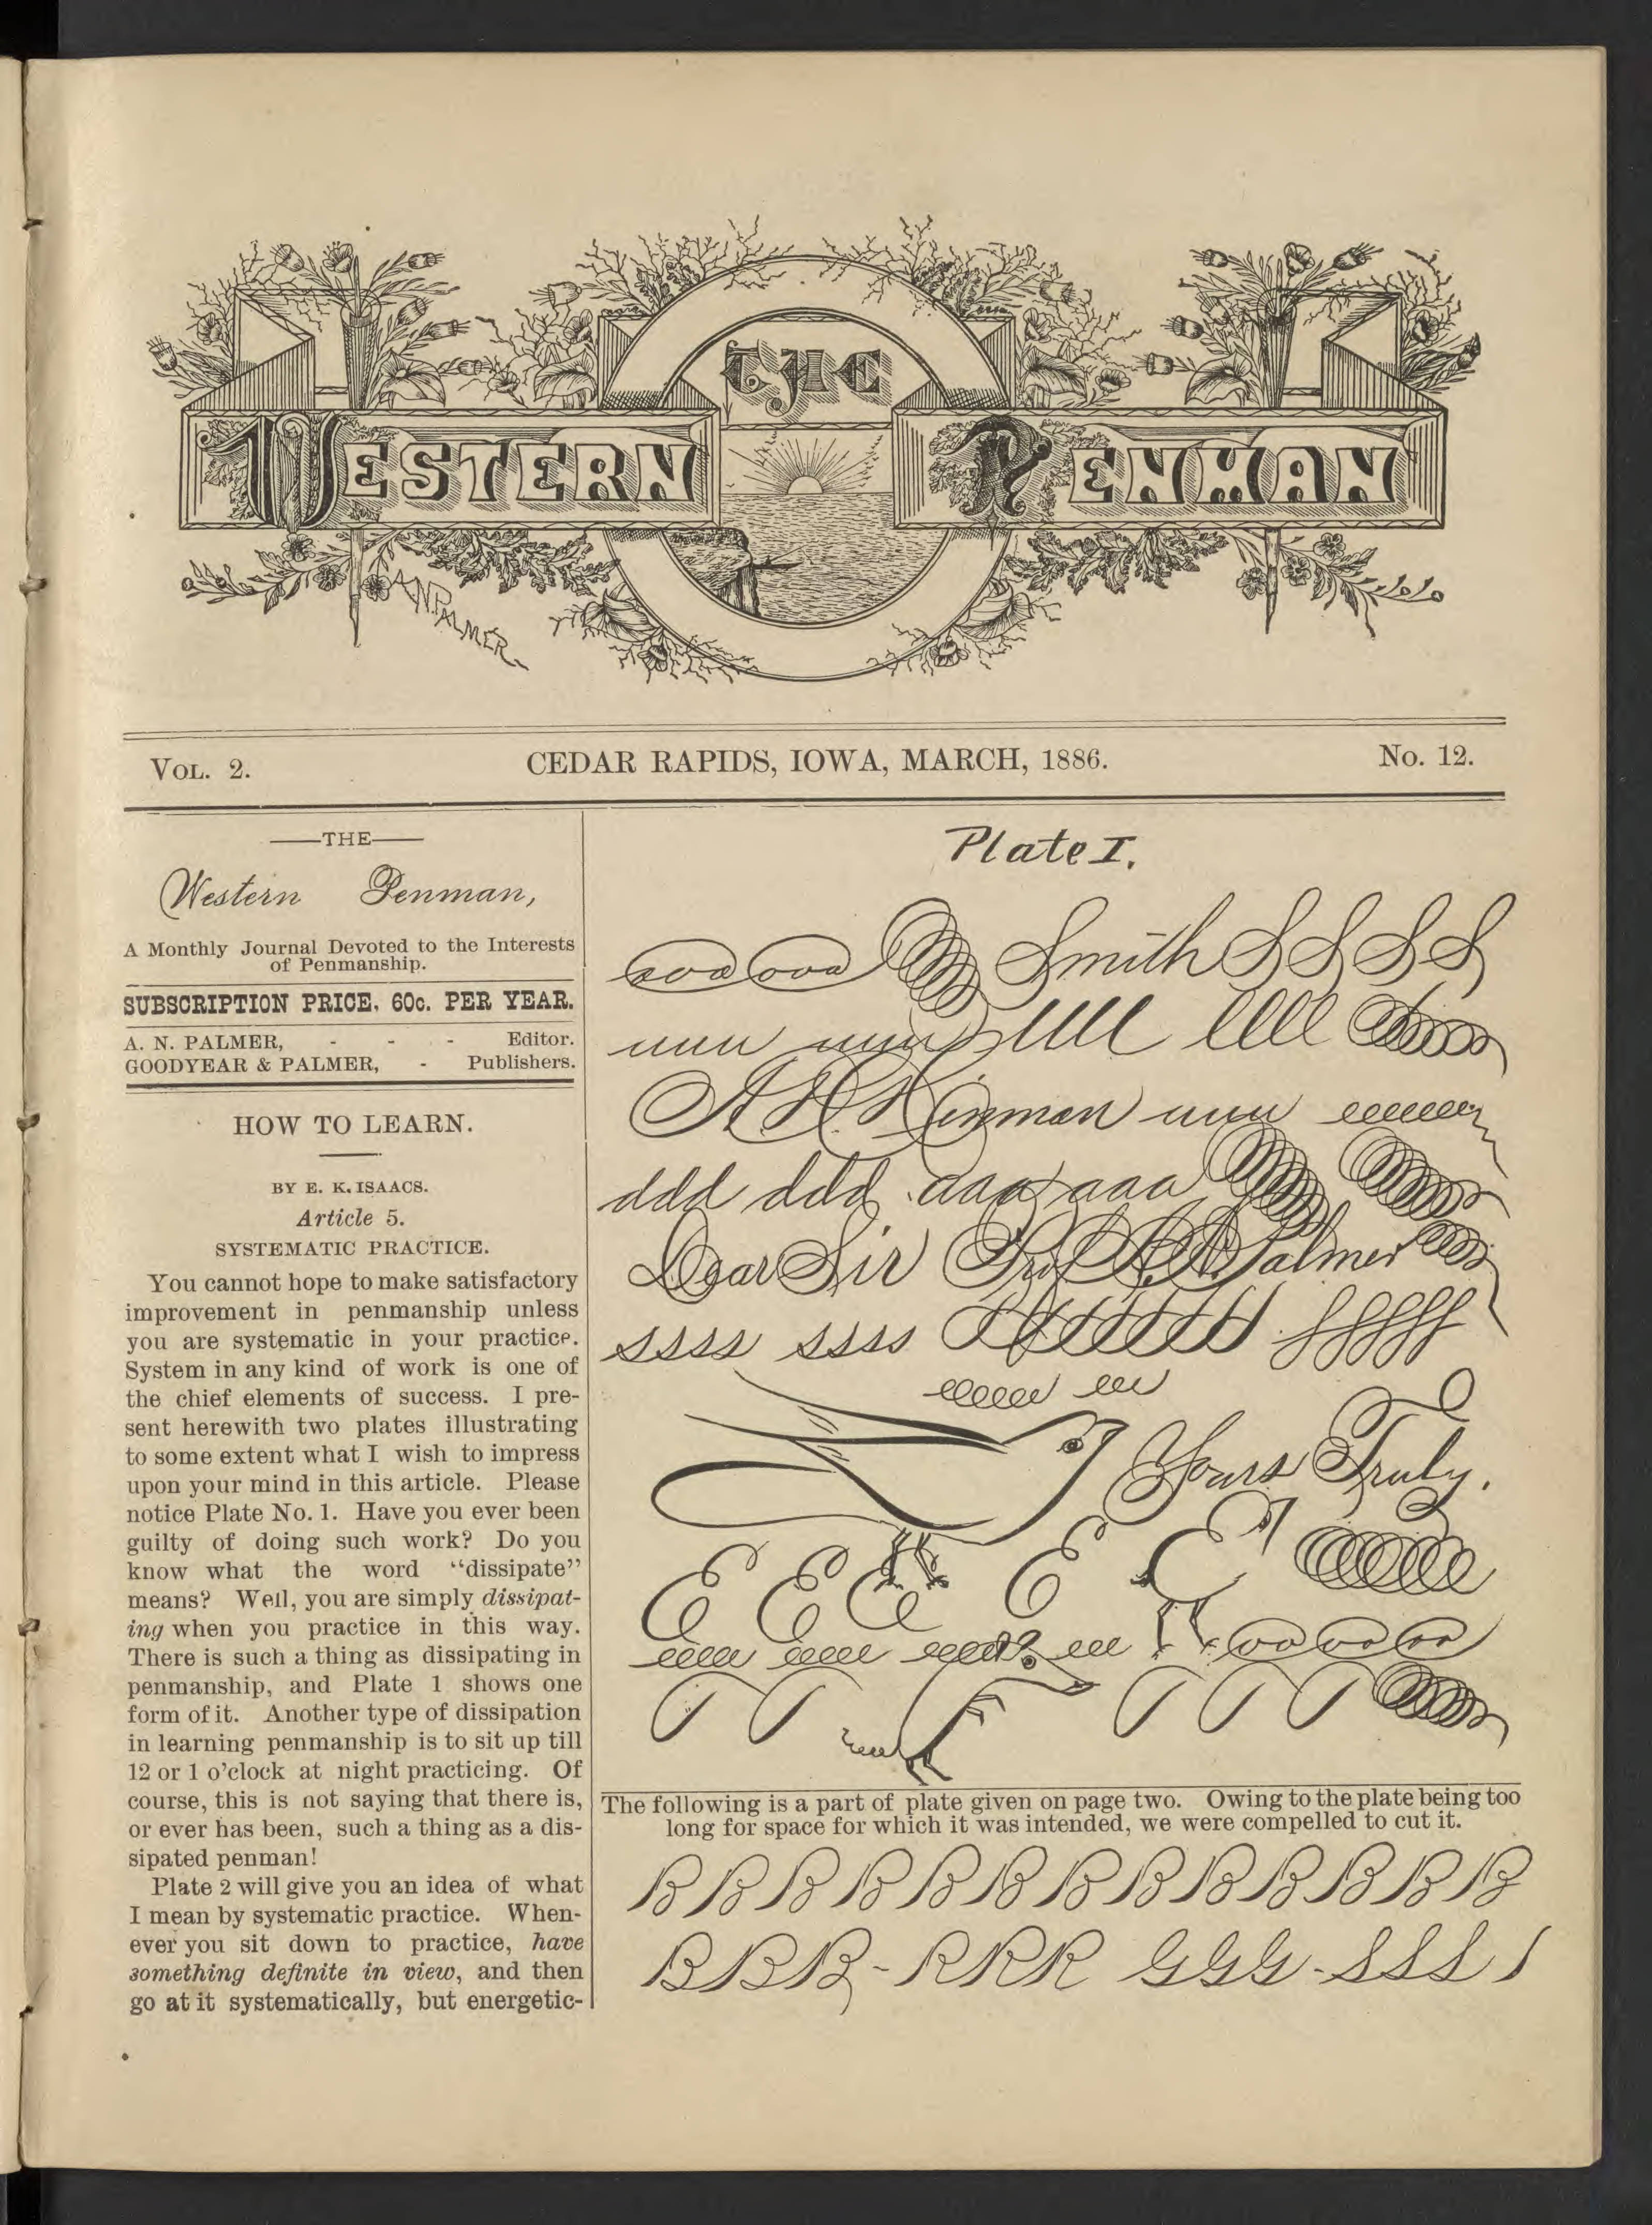 THE
WESTERN PENMAN
A N PALMER
VOL. 2. CEDAR RAPIDS, IOWA, MARCH, 1886. No. 12.
—THE—
Western Penman,
A Monthly Journal Devoted to the Interests
of Penmanship.
SUBSCRIPTION PRICE, 60c. PER YEAR.
A. N. PALMER, - - - Editor.
GOODYEAR & PALMER, - Publishers.
HOW TO LEARN.
BY E. K. ISAACS.
Article 5.
SYSTEMATIC PRACTICE.
You cannot hope to make satisfactory
improvement in penmanship unless
you are systematic in your practice.
System in any kind of work is one of
the chief elements of success. I pre-
sent herewith two plates illustrating
to some extent what I wish to impress
upon your mind in this article. Please
notice Plate No. 1. Have you ever been
guilty of doing such work? Do you
know what the word "dissipate"
means? Well, you are simply dissipat-
ing when you practice in this way.
There is such a thing as dissipating in
penmanship, and Plate 1 shows one
form of it. Another type of dissipation
in learning penmanship is to sit up till
12 or 1 o'clock at night practicing. Of
course, this is not saying that there is,
or ever has been, such a thing as a dis-
sipated penman!
Plate 2 will give you an idea of what
I mean by systematic practice. When-
ever you sit down to practice, have
something definite in view, and then
go at it systematically, but energetic-
Plate I.
Smith S S S S
uuu uuu llll llll
A H Hinman uuu eeeeeee
ddd ddd aaa aaa
Dear Sir Prof A. N. Palmer
ssss ssss
eeeee eee
Yours Truly.
E E E E E
eeee eeee eee
The following is a part of plate given on page two. Owing to the plate being too
long for space for which it was intended, we were compelled to cut it.
B B B B B B B B B B B B B
B B B - R R R G G G - S S S